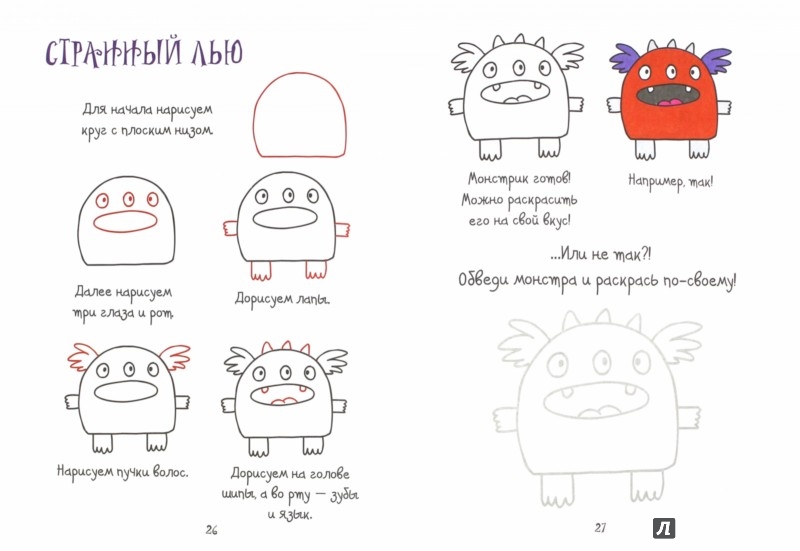 СТРАННЫЙ ЛЬЮ
Для начала нарисуем
круг с плоским низом.
Далее нарисуем
три глаза и рот.
Дорисуем лапы.
Нарисуем пучки волос.
Дорисуем на голове
шипы, а во рту — зубы
и язык.
26
Монстрик готов!
Можно раскрасить
его на свой вкус!
Например, так!
...Или не так?!
Обведи монстра и раскрась по-своему!
27
Л